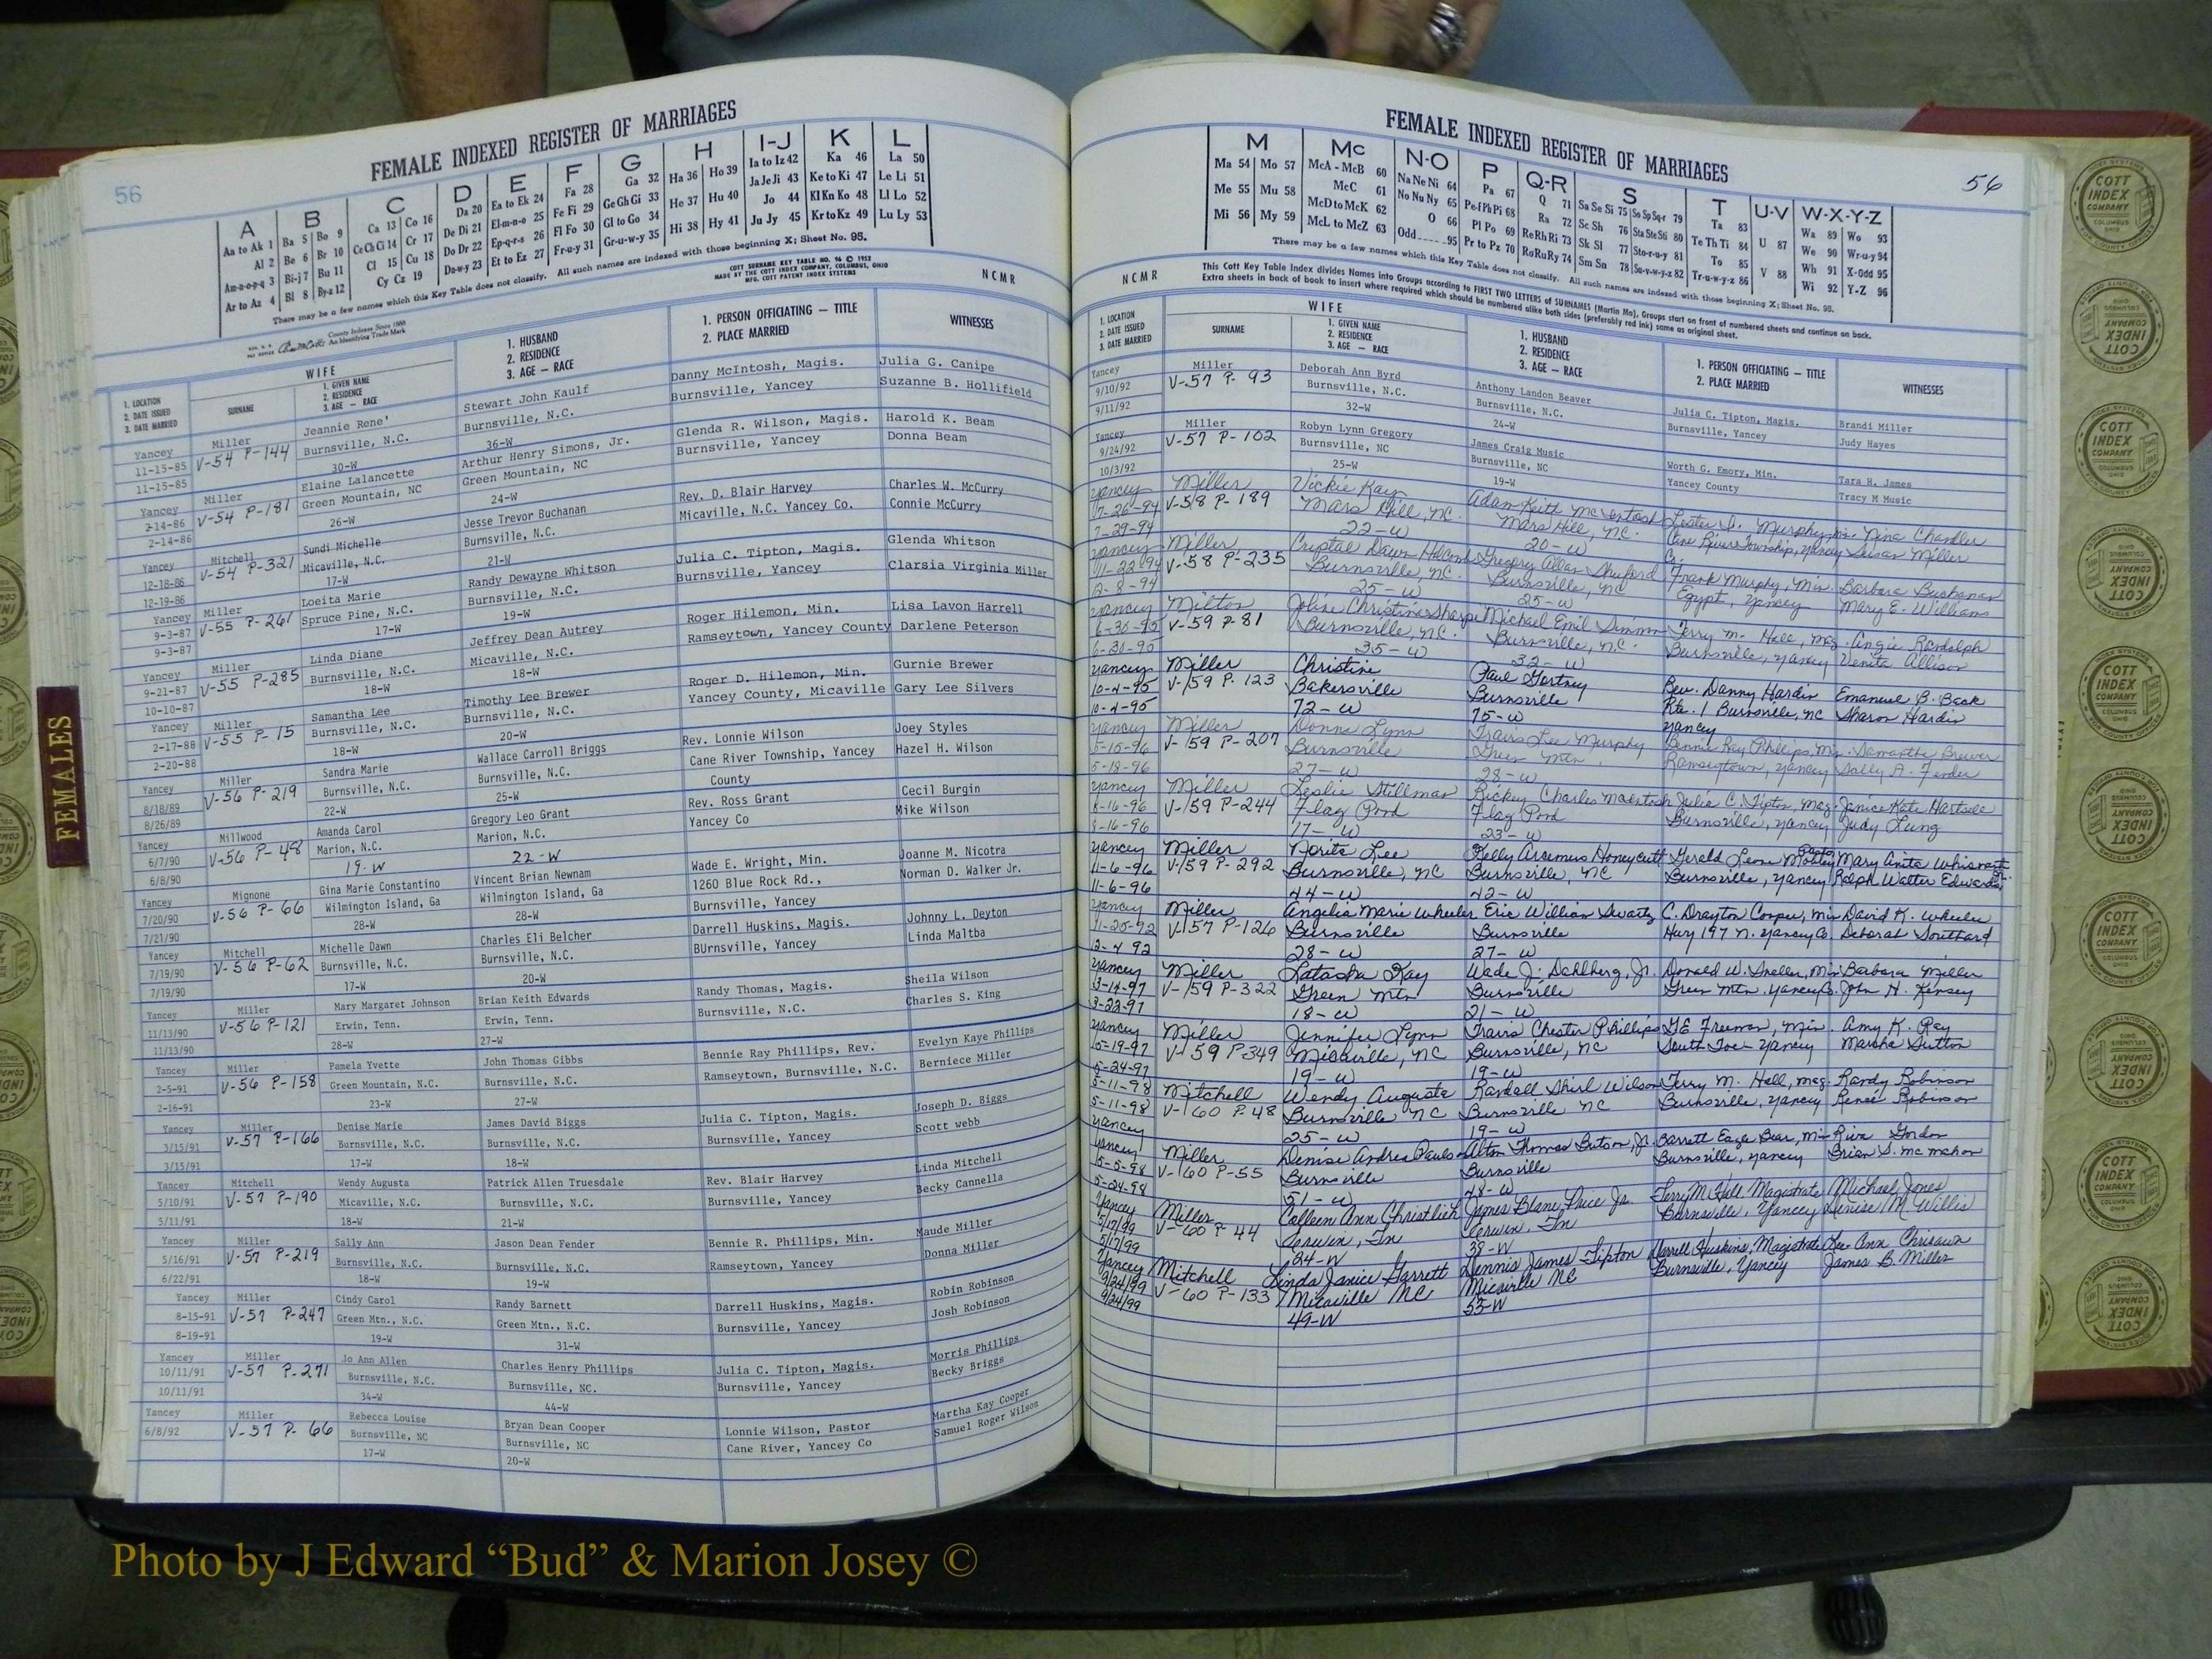 56
FEMALE INDEXED REGISTER OF MARRIAGES
A B C D E F G H I-J K L
Aa to Ak 1 Ba 5 Bo 9 Ca 13 Co 16 Da 20 Ea to Ek 24 Fa 28 Ga 32 Ha 36 Ho 39 Ia to Iz 42 Ka 46 La 50
Al 2 Be 6 Br 10 Ce Ch Ci 14 Cr 17 De Di 21 El-m-n-o 25 Fe Fi 29 Ge Gh Gi 33 He 37 Hu 40 Ja Je Ji 43 Ke to Ki 47 Le Li 51
Am-n-o-p-q 3 Bi-j 7 Bu 11 Cl 15 Cu 18 Do Dr 22 Ep-q-r-s 26 Fl Fo 30 Gl to Go 34 Hi 38 Hy 41 Jo 44 Kl Kn Ko 48 Ll Lo 52
Ar to Az 4 Bl 8 By-z 12 Cy Cz 19 Du-w-y 23 Et to Ez 27 Fr-u-y 31 Gr-u-w-y 35 Ju Jy 45 Kr to Kz 49 Lu Ly 53
There may be a few names which this Key Table does not classify. All such names are indexed with those beginning X; Sheet No. 95.
County Indexes Since 1888
An Identifying Trade Mark
COTT SURNAME KEY TABLE NO. 96 © 1952
MADE BY THE COTT INDEX COMPANY, COLUMBUS, OHIO
MFG. COTT PATENT INDEX SYSTEMS
NCMR
1. LOCATION
2. DATE ISSUED
3. DATE MARRIED
WIFE
SURNAME
1. GIVEN NAME
2. RESIDENCE
3. AGE — RACE
1. HUSBAND
2. RESIDENCE
3. AGE — RACE
1. PERSON OFFICIATING — TITLE
2. PLACE MARRIED
WITNESSES
Yancey Miller Jeannie Rene' Stewart John Kaulf Danny McIntosh, Magis. Julia G. Canipe
11-15-85 V-54 P-144 Burnsville, N.C. Burnsville, N.C. Burnsville, Yancey Suzanne B. Hollifield
11-15-85 30-W 36-W
Yancey Miller Elaine Lalancette Arthur Henry Simons, Jr. Glenda R. Wilson, Magis. Harold K. Beam
2-14-86 V-54 P-181 Green Mountain, NC Green Mountain, NC Burnsville, Yancey Donna Beam
2-14-86 26-W 24-W
Yancey Mitchell Sundi Michelle Jesse Trevor Buchanan Rev. D. Blair Harvey Charles W. McCurry
12-18-86 V-54 P-321 Micaville, N.C. Burnsville, N.C. Micaville, N.C. Yancey Co. Connie McCurry
12-19-86 17-W 21-W
Yancey Miller Loeita Marie Randy Dewayne Whitson Julia C. Tipton, Magis. Glenda Whitson
9-3-87 V-55 P-261 Spruce Pine, N.C. Burnsville, N.C. Burnsville, Yancey Clarsia Virginia Miller
9-3-87 17-W 19-W
Yancey Miller Linda Diane Jeffrey Dean Autrey Roger Hilemon, Min. Lisa Lavon Harrell
9-21-87 V-55 P-285 Burnsville, N.C. Micaville, N.C. Ramseytown, Yancey County Darlene Peterson
10-10-87 18-W 18-W
Yancey Miller Samantha Lee Timothy Lee Brewer Roger D. Hilemon, Min. Gurnie Brewer
2-17-88 V-55 P-15 Burnsville, N.C. Burnsville, N.C. Yancey County, Micaville Gary Lee Silvers
2-20-88 18-W 20-W
Yancey Miller Sandra Marie Wallace Carroll Briggs Rev. Lonnie Wilson Joey Styles
8/18/89 V-56 P-219 Burnsville, N.C. Burnsville, N.C. Cane River Township, Yancey County Hazel H. Wilson
8/26/89 22-W 25-W
Yancey Millwood Amanda Carol Gregory Leo Grant Rev. Ross Grant Cecil Burgin
6/7/90 V-56 P-48 Marion, N.C. Marion, N.C. Yancey Co Mike Wilson
6/8/90 19-W 22-W
Yancey Mignone Gina Marie Constantino Vincent Brian Newnam Wade E. Wright, Min. Joanne M. Nicotra
7/20/90 V-56 P-66 Wilmington Island, Ga Wilmington Island, Ga 1260 Blue Rock Rd., Norman D. Walker Jr.
7/21/90 28-W 28-W Burnsville, Yancey
Yancey Mitchell Michelle Dawn Charles Eli Belcher Darrell Huskins, Magis. Johnny L. Deyton
7/19/90 V-56 P-62 Burnsville, N.C. Burnsville, N.C. BUrnsville, Yancey Linda Maltba
7/19/90 17-W 20-W
Yancey Miller Mary Margaret Johnson Brian Keith Edwards Randy Thomas, Magis. Sheila Wilson
11/13/90 V-56 P-121 Erwin, Tenn. Erwin, Tenn. Burnsville, N.C. Charles S. King
11/13/90 28-W 27-W
Yancey Miller Pamela Yvette John Thomas Gibbs Bennie Ray Phillips, Rev. Evelyn Kaye Phillips
2-5-91 V-56 P-158 Green Mountain, N.C. Burnsville, N.C. Ramseytown, Burnsville, N.C. Berniece Miller
2-16-91 23-W 27-W
Yancey Miller Denise Marie James David Biggs Julia C. Tipton, Magis. Joseph D. Biggs
3/15/91 V-57 P-166 Burnsville, N.C. Burnsville, N.C. Burnsville, Yancey Scott webb
3/15/91 17-W 18-W
Yancey Mitchell Wendy Augusta Patrick Allen Truesdale Rev. Blair Harvey Linda Mitchell
5/10/91 V-57 P-190 Micaville, N.C. Burnsville, N.C. Burnsville, Yancey Becky Cannella
5/11/91 18-W 21-W
Yancey Miller Sally Ann Jason Dean Fender Bennie R. Phillips, Min. Maude Miller
5/16/91 V-57 P-219 Burnsville, N.C. Burnsville, N.C. Ramseytown, Yancey Donna Miller
6/22/91 18-W 19-W
Yancey Miller Cindy Carol Randy Barnett Darrell Huskins, Magis. Robin Robinson
8-15-91 V-57 P-247 Green Mtn., N.C. Green Mtn., N.C. Burnsville, Yancey Josh Robinson
8-19-91 19-W 31-W
Yancey Miller Jo Ann Allen Charles Henry Phillips Julia C. Tipton, Magis. Morris Phillips
10/11/91 V-57 P-271 Burnsville, N.C. Burnsville, NC. Burnsville, Yancey Becky Briggs
10/11/91 34-W 44-W
Yancey Miller Rebecca Louise Bryan Dean Cooper Lonnie Wilson, Pastor Martha Kay Cooper
6/8/92 V-57 P-66 Burnsville, NC Burnsville, NC Cane River, Yancey Co Samuel Roger Wilson
17-W 20-W
FEMALES
FEMALE INDEXED REGISTER OF MARRIAGES
56
M Mc N-O P Q-R S T U-V W-X-Y-Z
Ma 54 Mo 57 McA - McB 60 Na Ne Ni 64 Pa 67 Q 71 Sa Se Si 75 So Sp Sq-r 79 Ta 83 Wa 89 Wo 93
Me 55 Mu 58 McC 61 No Nu Ny 65 Pe-f Ph Pi 68 Ra 72 Sc Sh 76 Sta Ste Sti 80 Te Th Ti 84 U 87 We 90 Wr-u-y 94
Mi 56 My 59 McD to McK 62 O 66 Pl Po 69 Re Rh Ri 73 Sk Sl 77 Sto-r-u-y 81 To 85 Wh 91 X-Odd 95
McL to McZ 63 Odd 95 Pr to Pz 70 Ro Ru Ry 74 Sm Sn 78 Su-v-w-y-z 82 Tr-u-w-y-z 86 V 88 Wi 92 Y-Z 96
There may be a few names which this Key Table does not classify. All such names are indexed with those beginning X; Sheet No. 95.
NCMR
This Cott Key Table Index divides Names into Groups according to FIRST TWO LETTERS of SURNAMES (Martin Ma), Groups start on front of numbered sheets and continue on back.
Extra sheets in back of book to insert where required which should be numbered alike both sides (preferably red ink) same as original sheet.
1. LOCATION
2. DATE ISSUED
3. DATE MARRIED
WIFE
SURNAME
1. GIVEN NAME
2. RESIDENCE
3. AGE — RACE
1. HUSBAND
2. RESIDENCE
3. AGE — RACE
1. PERSON OFFICIATING — TITLE
2. PLACE MARRIED
WITNESSES
Yancey Miller Deborah Ann Byrd Anthony Landon Beaver Julia C. Tipton, Magis. Brandi Miller
9/10/92 V-57 P-93 Burnsville, N.C. Burnsville, N.C. Burnsville, Yancey Judy Hayes
9/11/92 32-W 24-W
Yancey Miller Robyn Lynn Gregory James Craig Music Worth G. Emory, Min. Tara H. James
9/24/92 V-57 P-102 Burnsville, NC Burnsville, NC Yancey County Tracy M Music
10/3/92 25-W 19-W
Yancey Miller Vickie Kay Adam Keith McIntosh Lester D. Murphy, Min. Nina Chandler
7-26-94 V-58 P-189 Mars Hill, NC. Mars Hill, NC. Cane River Township, Yancey Co. Susan Miller
7-29-94 22-W 20-W
Yancey Miller Crystal Dawn Holcomb Gregory Allan Shuford Frank Murphy, Min. Barbara Buchanan
11-22-94 V-58 P-235 Burnsville, NC. Burnsville, NC Egypt, Yancey Mary E. Williams
12-8-94 25-W 25-W
Yancey Milton Joline Christina Sharpe Michael Emil Simmn Terry M. Hall, Mag. Angie Randolph
6-30-95 V-59 P-81 Burnsville, NC. Burnsville, NC. Burnsville, Yancey Venita Allison
6-30-95 35-W 32-W
Yancey Miller Christine Paul Gortney Rev. Danny Hardin Emanuel B. Back
10-4-95 V-59 P. 123 Bakersville Burnsville Rte. 1 Burnsville, NC Sharon Hardin
10-4-95 72-W 75-W Yancey
Yancey Miller Donna Lynn Travis Lee Murphy Bennie Ray Phillips, Min. Samantha Brewer
5-15-96 V-59 P-207 Burnsville Green Mtn. Ramseytown, Yancey Sally A. Fender
5-18-96 27-W 28-W
Yancey Miller Leslie Stillman Rickey Charles McIntosh Julia C. Tipton, Mag. Janice Kate Hartsoe
8-16-96 V-59 P-244 Flag Pond Flag Pond Burnsville, Yancey Judy Lung
8-16-96 17-W 23-W
Yancey Miller Norita Lee Kelly Arsemus Honeycutt Gerald Leon Mobley Pastor Mary Anita Whisnant
11-6-96 V-59 P-292 Burnsville, NC Burnsville, NC Burnsville, Yancey Ralph Walter Edwards, Jr.
11-6-96 44-W 42-W
Yancey Miller Angelia Marie Wheeler Eric William Swartz C. Drayton Cooper, Min David K. Wheeler
11-25-92 V-57 P-126 Burnsville Burnsville Hwy 197 N. Yancey Co. Deborah Southard
12-4-92 28-W 27-W
Yancey Miller Latasha Kay Wade J. Dahlberg, Jr. Donald W. Sneller, Min Barbara Miller
3-14-97 V-59 P-322 Green Mtn Burnsville Green Mtn. Yancey Co. John H. Kensey
3-22-97 18-W 21-W
Yancey Miller Jennifer Lynn Travis Chester Phillips G.E. Freeman, Min. Amy K. Ray
5-19-97 V-59 P-349 Micaville, NC Burnsville, NC South Toe-Yancey Marsha Sutton
5-24-97 19-W 19-W
5-11-98 Mitchell Wendy Augusta Randall Shirl Wilson Terry M. Hall, Mag. Randy Robinson
5-11-98 V-60 P-48 Burnsville NC Burnsville NC Burnsville, Yancey Renee Robinson
Yancey 25-W 19-W
Yancey Miller Denise Andrea Pauls Alton Thomas Butson, Jr. Barrett Eagle Bear, Min Riva Gordon
5-5-98 V-60 P-55 Burnsville Burnsville Burnsville, Yancey Brian S. McMahon
5-24-98 51-W 48-W
Yancey Miller Colleen Ann Christlieb James Blane Price Jr. Terry M Hall Magistrate Michael Jones
5/17/99 V-60 P 44 Erwin, Tn Erwin, Tn Burnsville, Yancey Denise M. Willis
5/17/99 24-W 38-W
Yancey Mitchell Linda Janice Garrett Dennis James Tipton Darrell Huskins, Magistrate Lee Ann Chrisawn
9/24/99 V-60 P-133 Micaville NC Micaville NC Burnsville, Yancey James B. Miller
9/24/99 49-W 53-W
COTT INDEX COMPANY COLUMBUS OHIO
Photo by J Edward “Bud” & Marion Josey ©